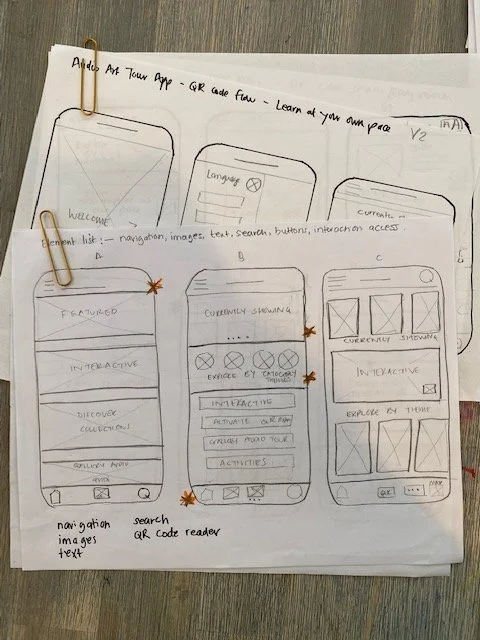 Audio Art Tour App - QR Code Flow - Learn at your own pace
V2
AA
Language
WELCOME
Element list :- navigation, images, text, search, buttons, interaction access.
A
B
C
FEATURED
INTERACTIVE
DISCOVER
COLLECTIONS
GALLERY AUDIO
CURRENTLY SHOWING
EXPLORE BY CATEGORY
INTERACTIVE
ACTIVATE
GALLERY AUDIO TOUR
ACTIVITIES
CURRENTLY SHOWING
INTERACTIVE
EXPLORE BY THEME
QR
navigation
images
text
search
QR Code reader